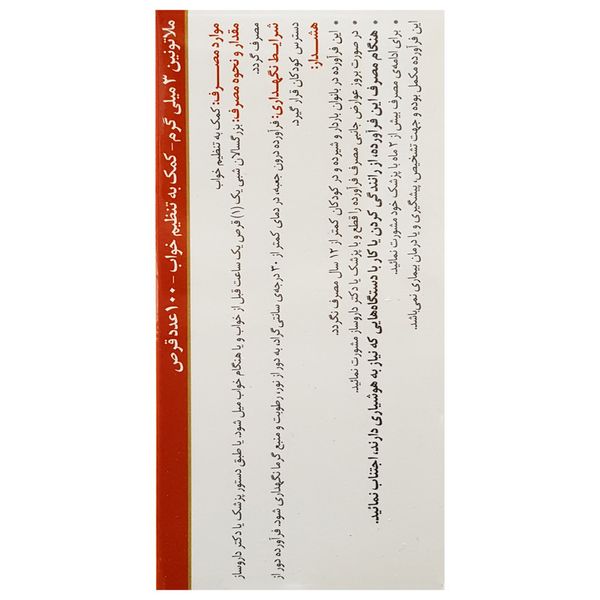 ملاتونین ۳ میلی گرم - کمک به تنظیم خواب - ۱۰۰ عدد قرص
موارد مصرف: کمک به تنظیم خواب
مقدار و نحوه مصرف: بزرگسالان شبی یک (۱) قرص یک ساعت قبل از خواب و یا هنگام خواب میل شود. یا طبق دستور پزشک یا دکتر داروساز
مصرف گردد.
شرایط نگهداری: فرآورده درون جعبه، در دمای کمتر از ۳۰ درجه‌ی سانتی گراد، به دور از نور، رطوبت و منبع گرما نگهداری شود. فرآورده دور از
دسترس کودکان قرار گیرد.
هشدار:
• این فرآورده در بانوان باردار و شیرده و در کودکان کمتر از ۱۲ سال مصرف نگردد.
• در صورت بروز عوارض جانبی مصرف فرآورده را قطع و با پزشک یا دکتر داروساز مشورت نمائید.
• هنگام مصرف این فرآورده، از رانندگی کردن یا کار با دستگاه‌هایی که نیاز به هوشیاری دارند، اجتناب نمائید.
• برای ادامه‌ی مصرف بیش از ۲ ماه با پزشک خود مشورت نمائید.
این فرآورده مکمل بوده و جهت تشخیص، پیشگیری و یا درمان بیماری نمی‌باشد.